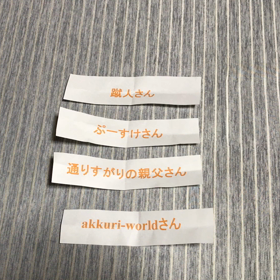 蹴人さん
ぷーすけさん
通りすがりの親父さん
akkuri-worldさん